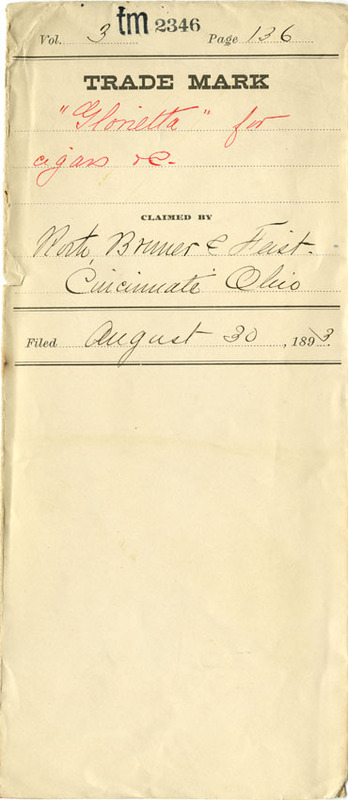 tm 2346
Vol. 3 Page 136
TRADE MARK
"Glorietta" for
cigars &c.
CLAIMED BY
Roth, Bruner & Feist.
Cincinnati Ohio
Filed August 30, 1893.